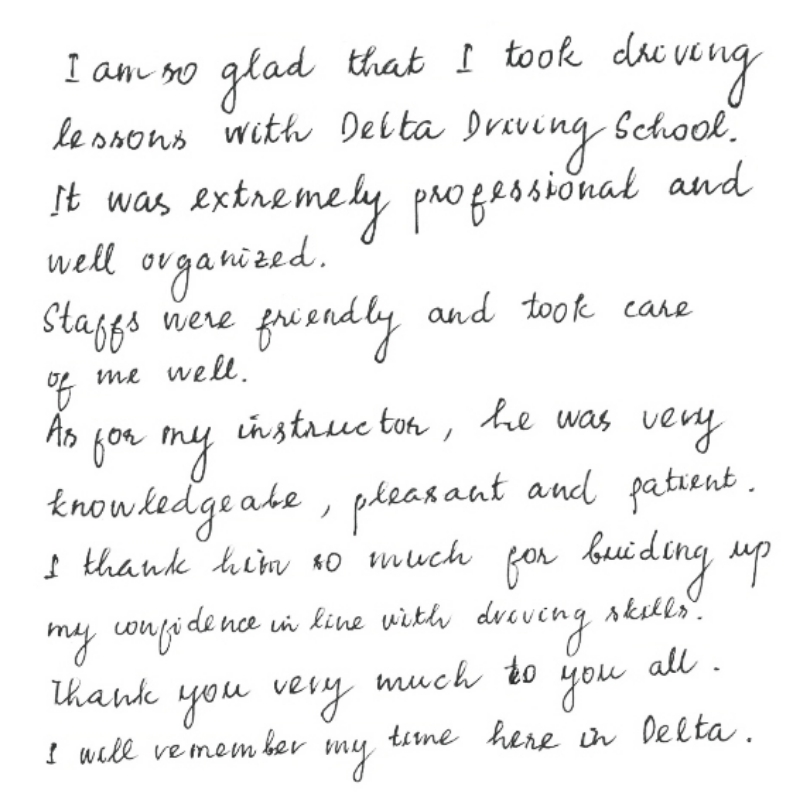 I am so glad that I took driving
lessons with Delta Driving School.
It was extremely professional and
well organized.
Staffs were friendly and took care
of me well.
As for my instructor, he was very
knowledgeabe, pleasant and patient.
I thank him so much for buiding up
my confidence in line with driving skills.
Thank you very much to you all.
I will remember my time here in Delta.